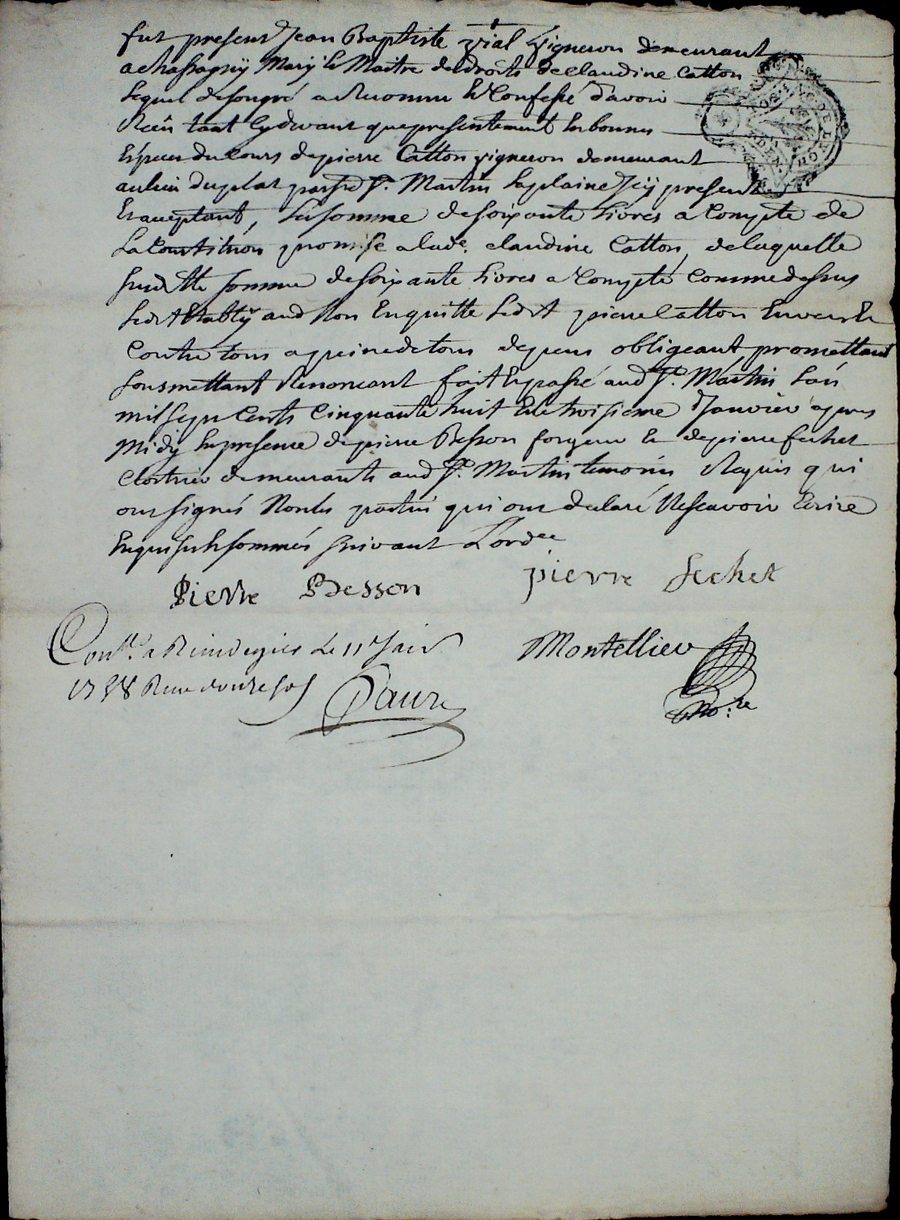 fut present Jean Baptiste vial vigneron demeurant
a chassagny Mary et Maitre des droits de claudine Catton
lequel de son gré a reconnu et Confessé d'avoir
Reçû tant cydevant que presentement en bonnes
Espèces du cours de pierre Catton vigneron demeurant
au lieu du plat parsse St. Martin la plaine Icy present
Et acceptant, la somme de soixante livres a Compte de
la Constitution promise a lade. claudine Catton, de laquelle
susditte somme de soixante livres a Compte Comme dessus
ledt Etably aud Nom En quitte ledt pierre Catton Envers Et
Contre tous a peine de tous depens obligeant promettant
soumettant Renonçant fait Et passé aud St. Martin l'an
mil sept Cents Cinquante huit Et le troisieme Janvier apres
Midy En presence de pierre Besson forgeur Et de pierre fechet
cloutrier demeurants aud St. Martin temoins Requis qui
ont signés Non les parties qui ont declaré Ne scavoir Ecrire
Enquis Et sommés suivant L'ordce
Pierre Besson pierre fechet
Conllé. a Rivedegier Le 11e Janv
1758 Reçu douze sols
Montellier
Nore